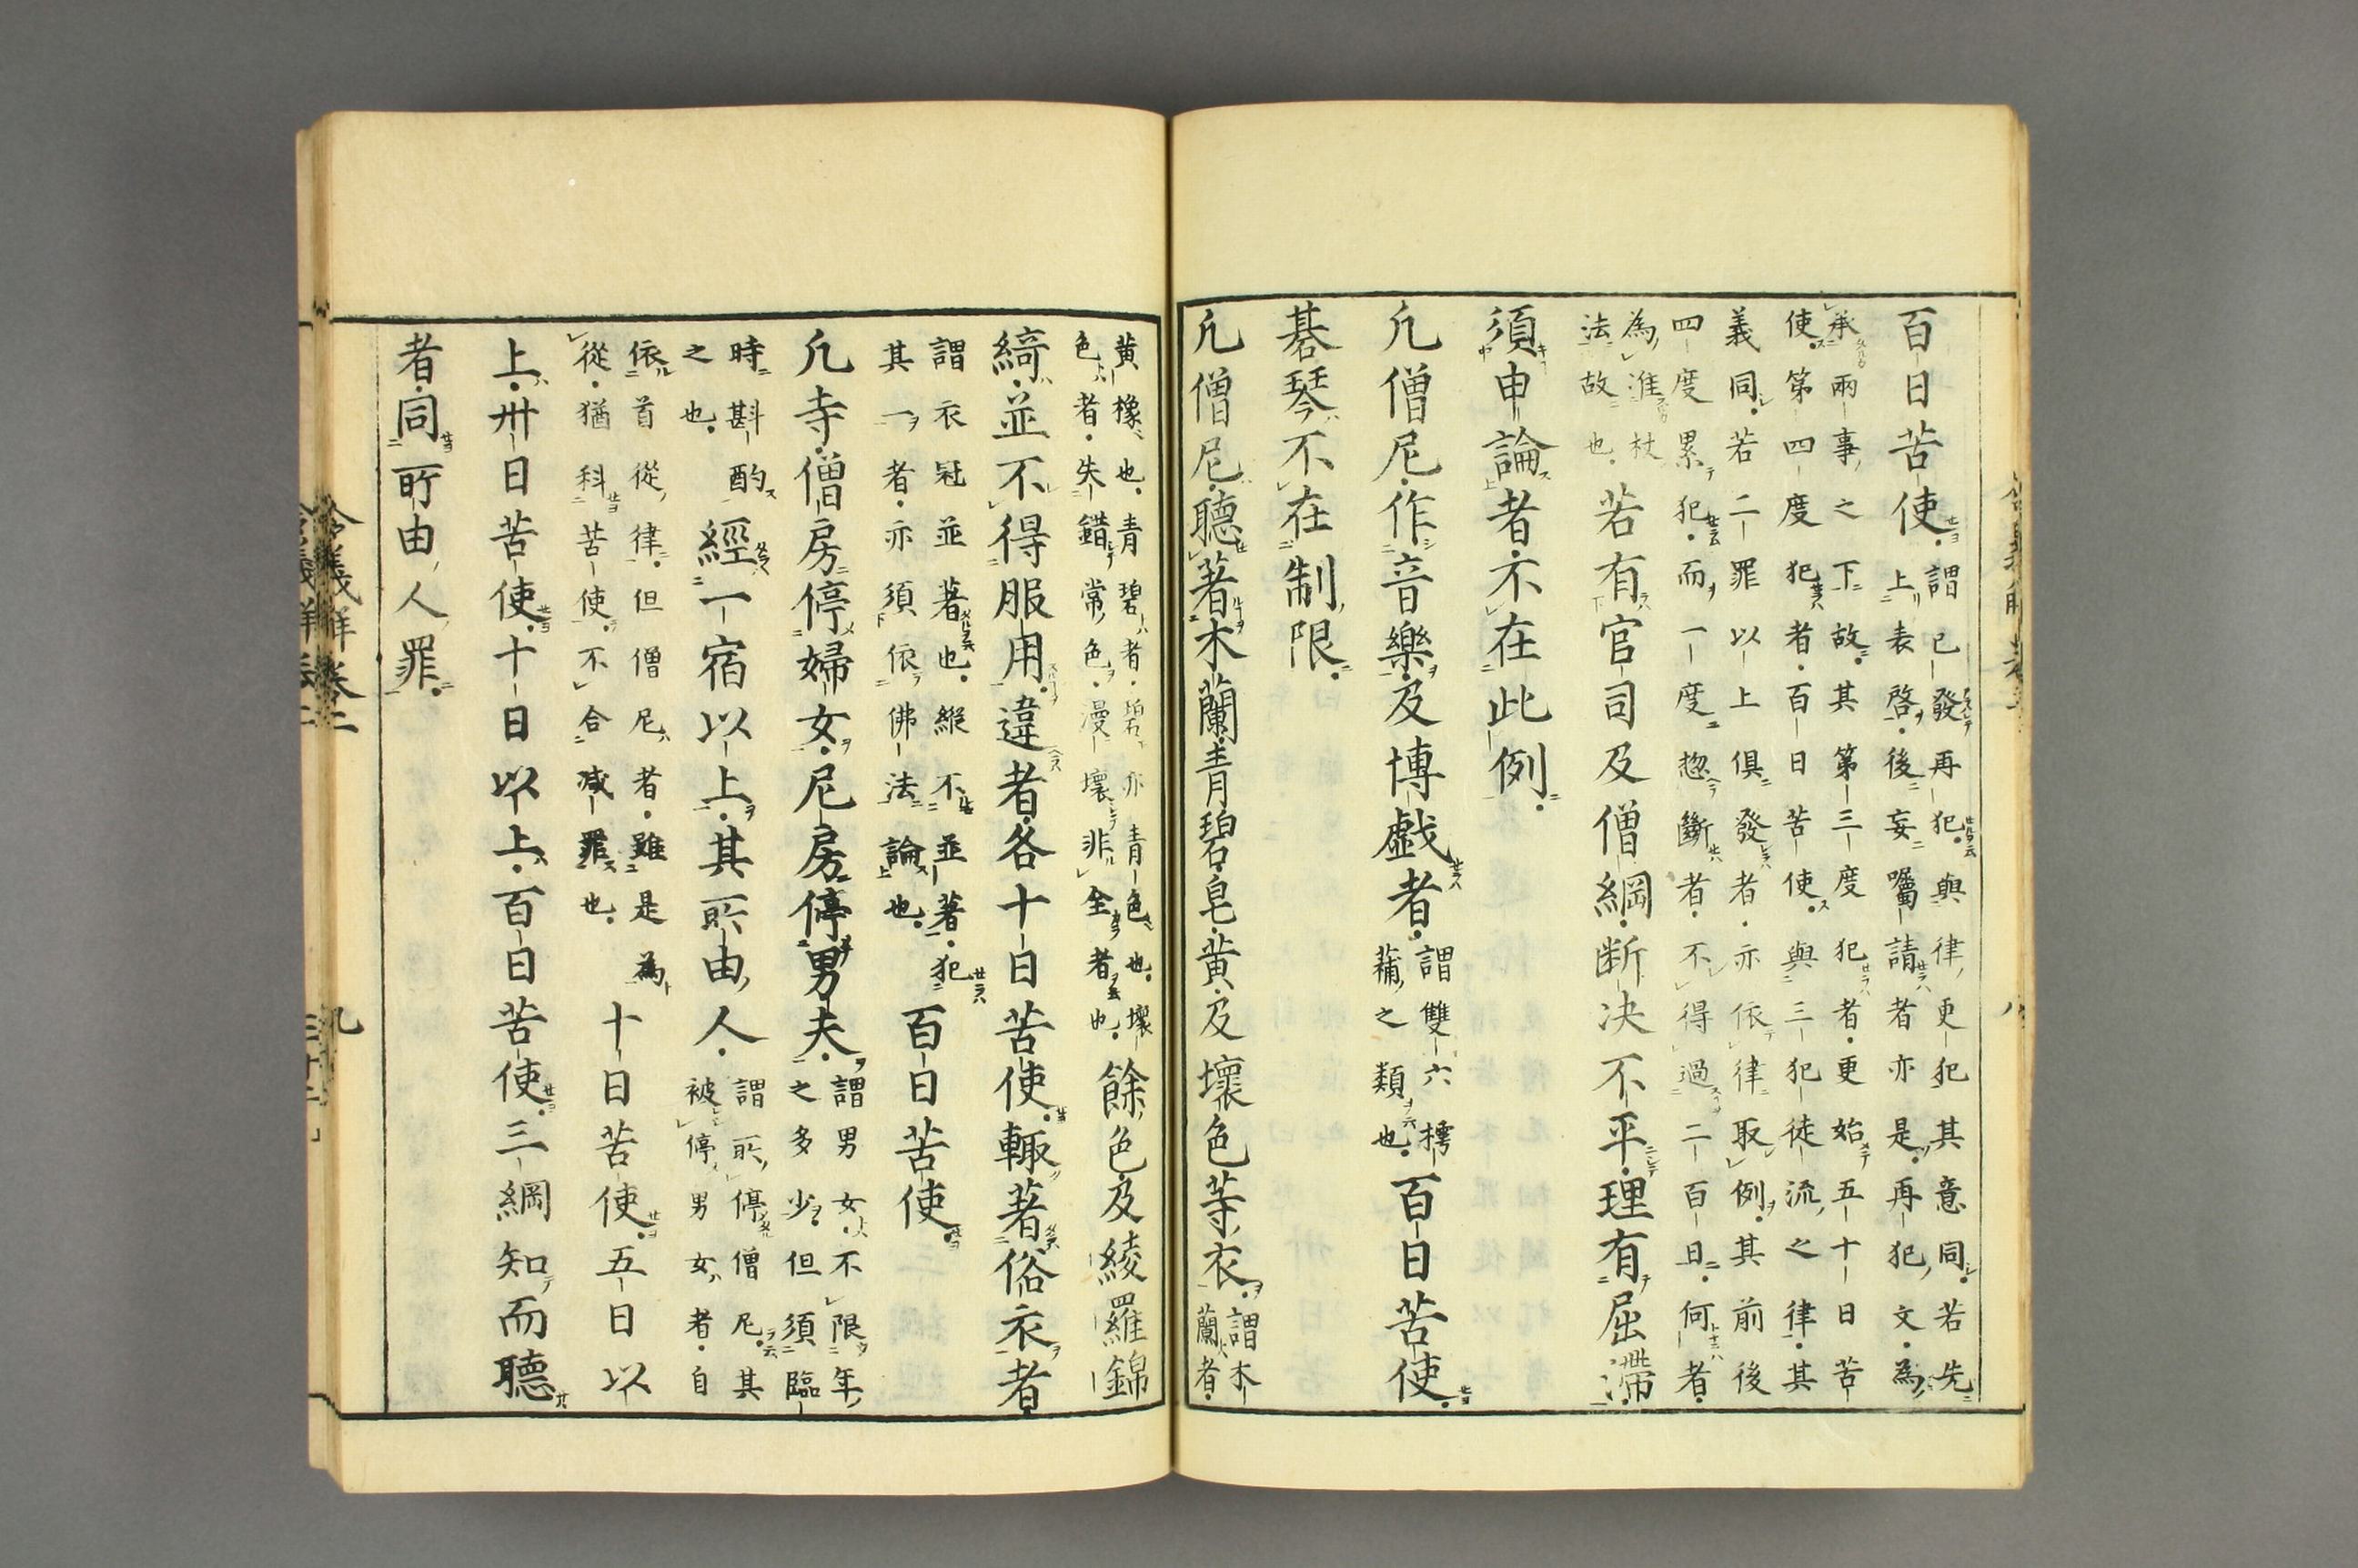 百日苦使。
謂已發再犯。與律更犯其意同。若先
上表啓。後妄囑請者亦是。再犯文。為
承兩事之下故。其第三度犯者。更始五十日苦
使。第四度犯者。百日苦使。與三犯徒流之律。其
義同。若二罪以上俱發者。亦依律取例。其前後
四度累犯。而一度惣斷者。不得過二百日。何者。
為准杖
法故也。
若有官司及僧綱。断决不平。理有屈滯。
須申論者。不在此例。
凢僧尼。作音樂。及博戯者。
謂雙六樗
蒱之類也。
百日苦使。
碁琴不在制限。
凢僧尼。聽著木蘭。青碧。皂。黄。及壞色等衣。
謂木
蘭者。
黄橡也。青碧者。碧亦青色也。壞
色者。失錯常色。漫壞非全者也。
餘色及綾羅錦
綺。並不得服用。違者。各十日苦使。輙著俗衣者
謂衣冠並著也。縱不並著。犯
其一者。亦須依佛法論也。
百日苦使
凢寺。僧房停婦女。尼房停男夫。
謂男女。不限年
之多少。但須臨
時斟酌
之也。
經一宿以上。其所由人。
謂所停僧尼。其
被停男女者。自
依首從律。但僧尼者。雖是為
從。猶科苦使。不合减罪也。
十日苦使。五日以
上。卅日苦使。十日以上。百日苦使。三綱知而聽
者。同所由人罪。
令義解卷二
九